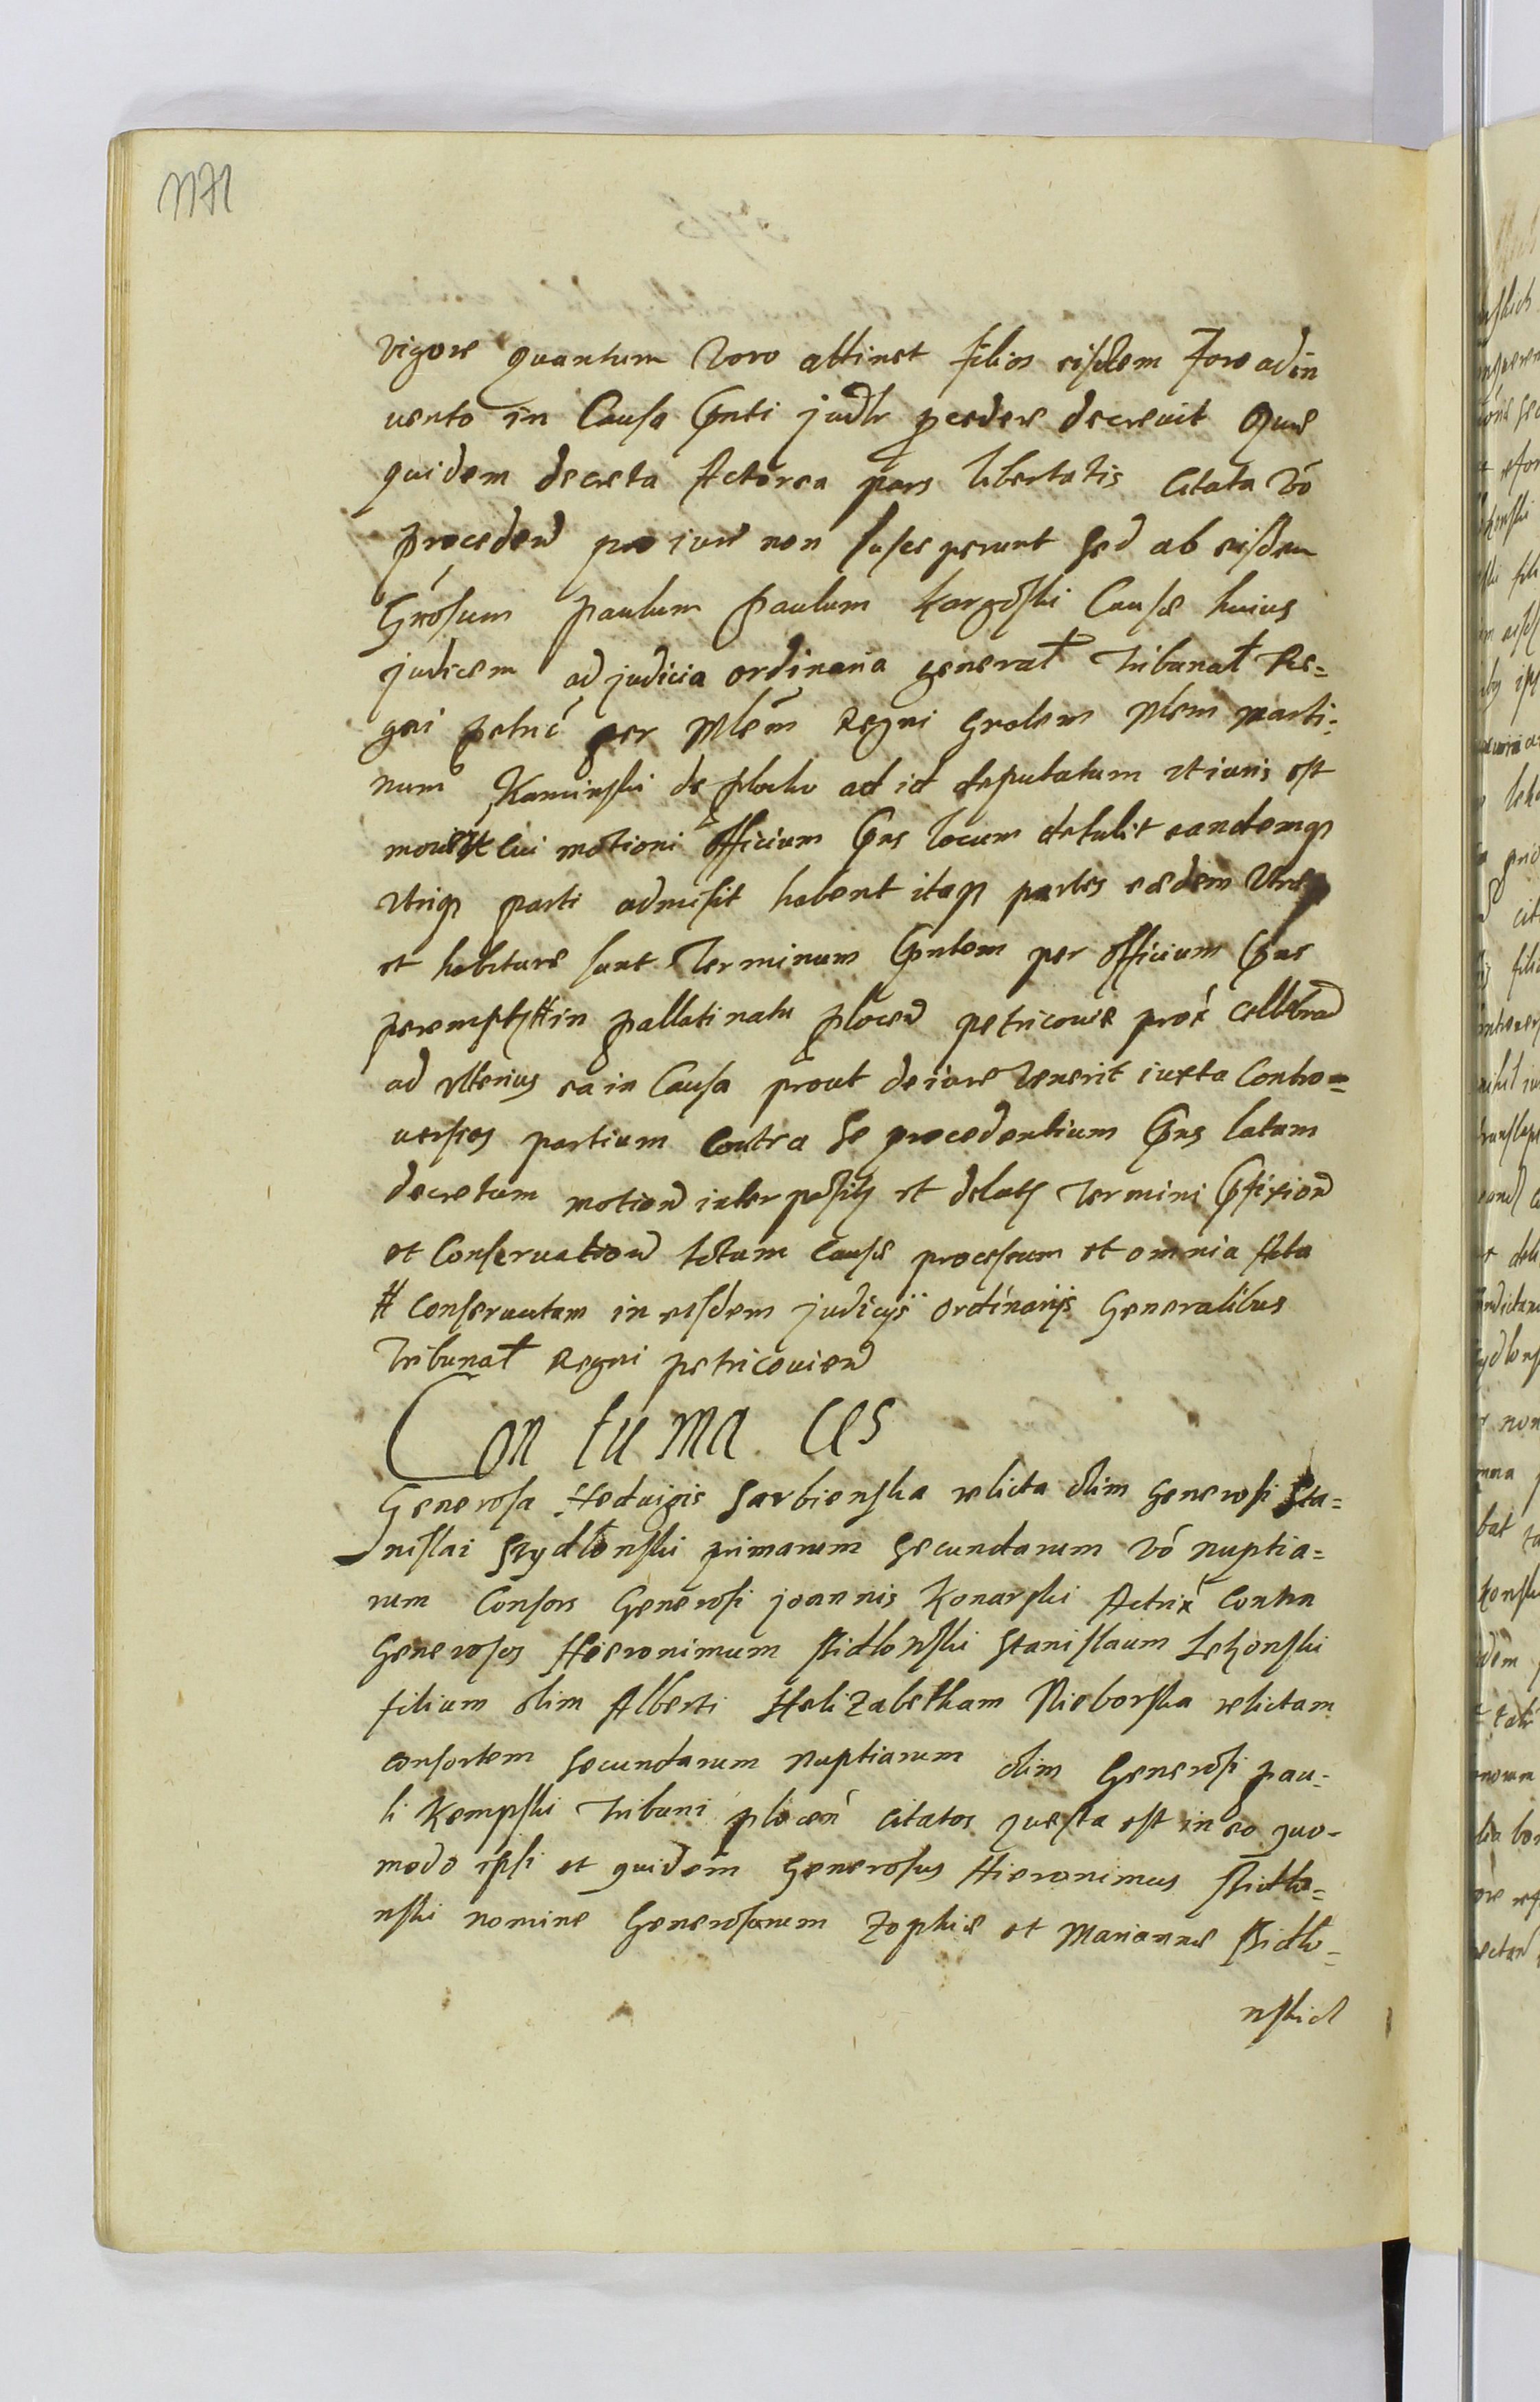 vigore quantum vero attinet filios eisdem Foro adin
uento in Causa Pnti judtr pcedere decreuit Quae
quidem decreta Actorea pars libertatis Citata vo
proceden pro iure non susceperunt sed ab eisdem
Grosum paulum paulum Kargoski Causae huius
judicem ad judicia ordinaria general Tribunal Re=
gni petric per Mlem Regni Gnalem Nlem Marti=
num Kaminski de plocko ad id deputatum vt iuris est
mouet Cui motioni officium Pns locum detulit eandemq
vtriq parti admisit habent itaq partes eaedem vtreq
et habiturae sunt Terminum Pntem per officium Pns
perempt # in pallatinatu plocen petricouiae prox Cellebran
ad vlterius ea in Causa prout de iure venerit iuxta Contro=
uersias partium Contra se procedentium Pns latum
decretum motion interposit et delat Termini Pfixion
et Conseruation totum Causae processum et omnia Acta
# Conseruatam in eisdem judicijs ordinarijs Generalibus
Tribunal Regni petricouien
Con tu ma ces
Generosa Heduigis Sarbienska relicta olim Generosi Sta=
nislai Szydlonski primarum secundarum vo nuptia=
rum Consors Generosi joannis Konarski Actrix Contra
Generosos Hieronimum Sidlonski Stanislaum Lezonski
filium olim Alberti Helizabetham Nieborska relictam
consortem secundarum nuptiarum olim Generosi pau=
li Kempski Tribuni plocen Citatos questa est in eo quo=
modo ipsi et quidem Generosus Hieronimus Sidlo=
nski nomine Generosarum Zophiae et Mariannae Sidlo=
nskich